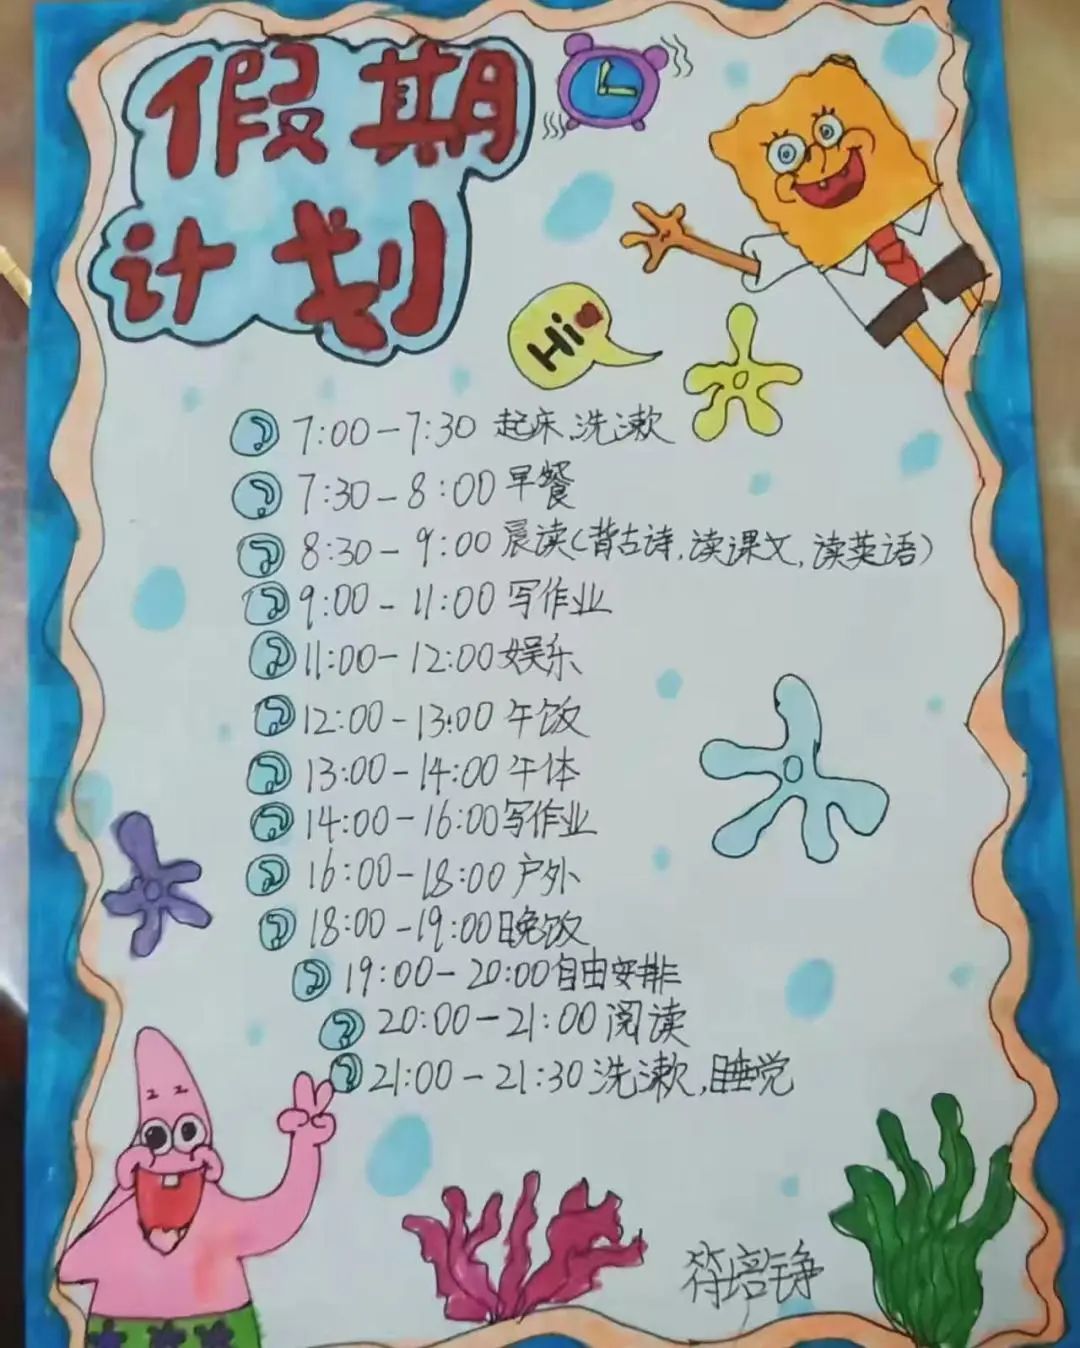 假期
计划
Hi
7:00-7:30 起床、洗漱
7:30-8:00 早餐
8:30-9:00 晨读(背古诗,读课文,读英语)
9:00-11:00 写作业
11:00-12:00 娱乐
12:00-13:00 午饭
13:00-14:00 午体
14:00-16:00 写作业
16:00-18:00 户外
18:00-19:00 晚饭
19:00-20:00 自由安排
20:00-21:00 阅读
21:00-21:30 洗漱,睡觉
符培铮